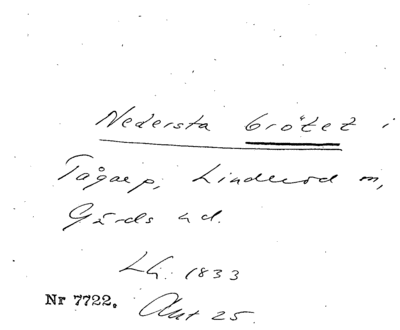 Nedersta brötet i
Tågarp, Linderöd sn,
Gärds hd.
Lh. 1833
Nr 7722. Akt 25.